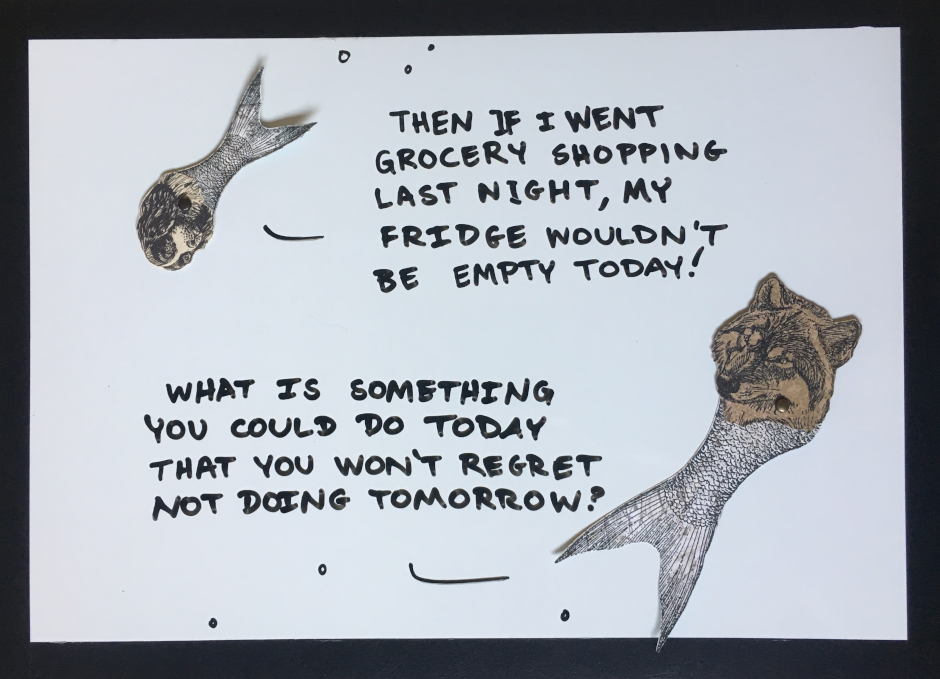 THEN IF I WENT
GROCERY SHOPPING
LAST NIGHT, MY
FRIDGE WOULDN'T
BE EMPTY TODAY!
WHAT IS SOMETHING
YOU COULD DO TODAY
THAT YOU WON'T REGRET
NOT DOING TOMORROW?